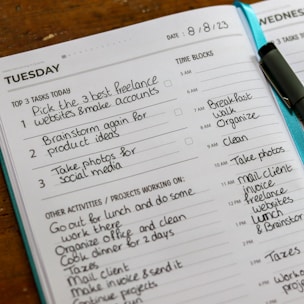 TUESDAY
DATE: 8/8/23
TOP 3 TASKS TODAY
1 Pick the 3 best freelance
websites & make accounts
2 Brainstorm again for
product ideas
3 Take photos for
social media
OTHER ACTIVITIES / PROJECTS WORKING ON:
Go out for lunch and do some
work there
Organize office and clean
Cook dinner for 2 days
Taxes
Mail client
Make invoice & send it
Continue projects
TIME BLOCKS
5 AM
6 AM
7 AM Breakfast
walk
8 AM Organize
9 AM Clean
10 AM Take photos
11 AM Mail client
invoice
12 PM freelance
websites
1 PM Lunch
& Brainstorm
Taxes
Work
project
WEDNES
TOP 3 TASKS
1
2
3